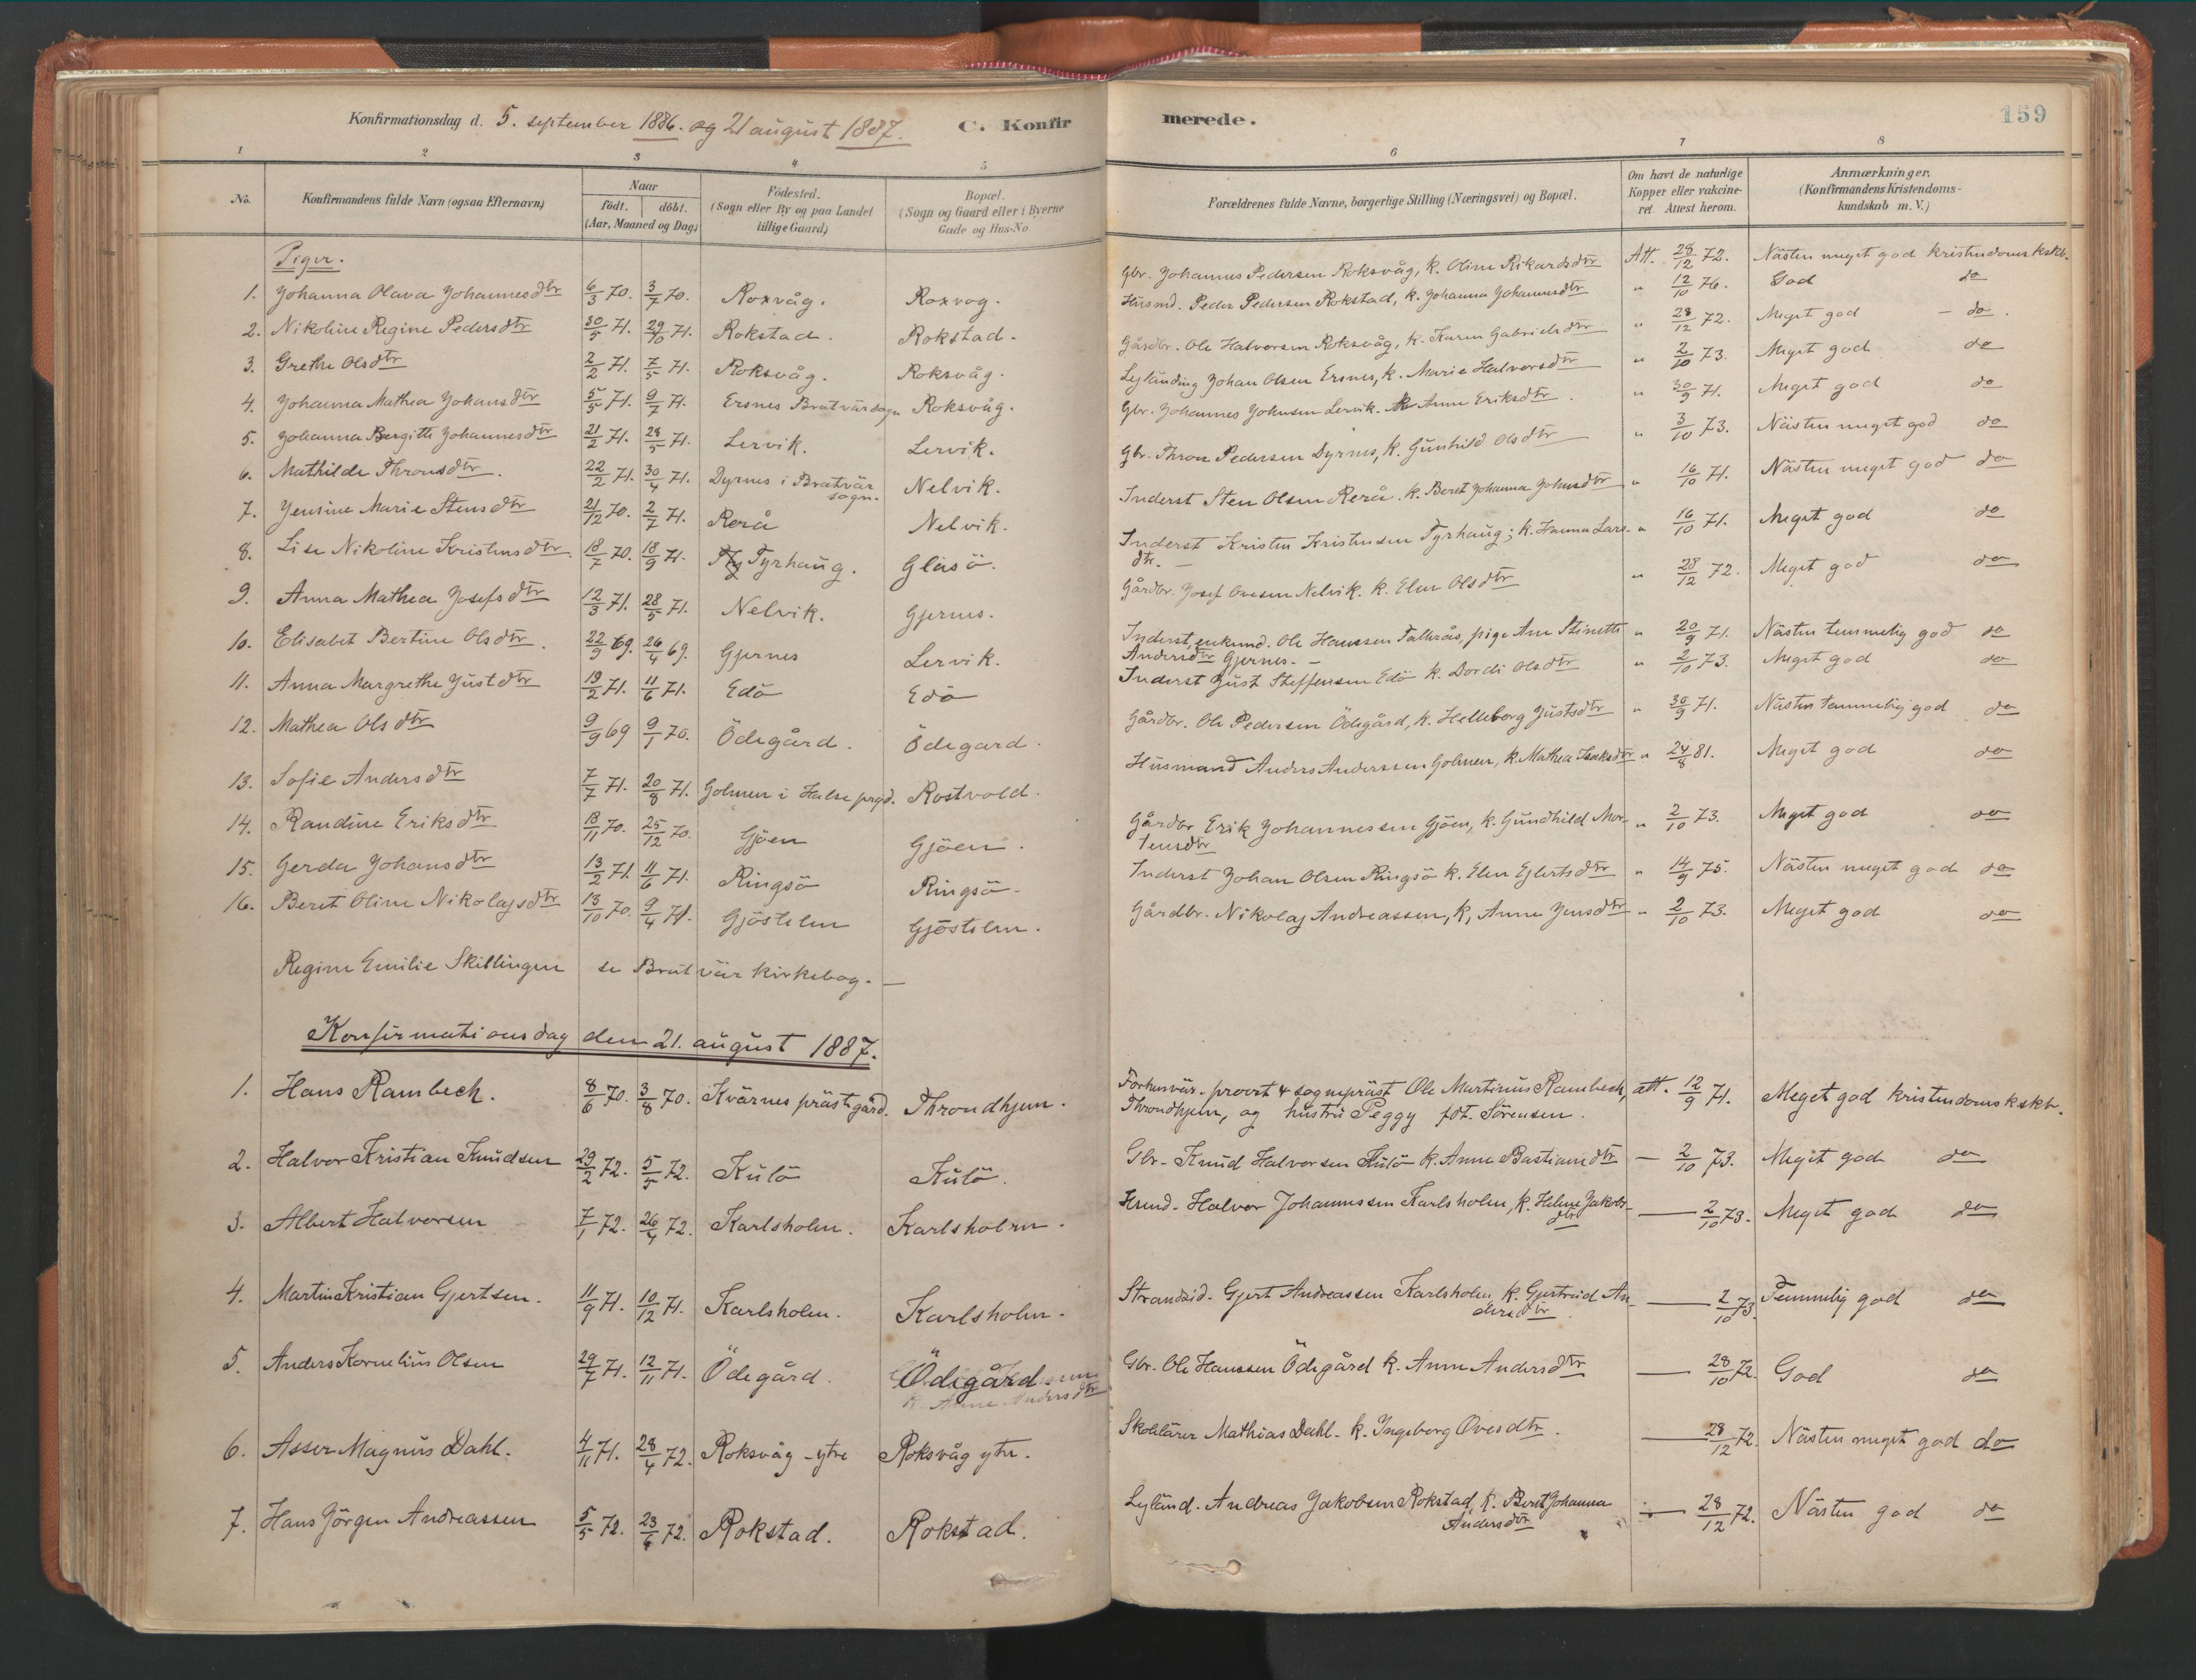 Konfirmationsdag d. 5. september 1886. og 21 august 1887.
C. Konfir merede.
159
1 2 3 4 5 6 7 8
No.
Konfirmandens fulde Navn (ogsaa Efternavn)
Naar
födt. döbt.
(Aar, Maaned og Dag)
Födested.
(Sogn eller By og paa Landet
tillige Gaard)
Bopæl.
(Sogn og Gaard eller i Byerne
Gade og Hus-No
Forældrenes fulde Navne, borgerlige Stilling (Næringsvei) og Bopæl.
Om havt de naturlige
Kopper eller vakcine-
ret Attest herom.
Anmærkninger.
(Konfirmandens Kristendoms-
kundskab m. V.)
Piger.
1. Johanna Olava Johannesdtr 6/3 70. 3/7 70. Roxvåg. Roxvog. Gbr. Johannes Pedersen Roksvåg, k. Oline Rikardsdtr Att. 28/12 72. Nästen meget god kristendomskskb.
2. Nikoline Regine Pedersdtr 30/5 71. 29/10 71. Rokstad. Rokstad. Husmd. Peder Pedersen Rokstad, k. Johanna Johannesdtr " 12/10 76. God do
3. Grethe Olsdtr 2/2 71. 7/5 71. Roksvåg. Roksvåg. Gårdbr. Ole Halvorsen Roksvåg, k. Karen Gabrielsdtr " 28/12 72. Meget god – do.
4. Johanna Mathea Johansdtr 5/5 71. 9/7 71. Ersnes Bratvärsogn Roksvåg. Leyländing Johan Olsen Ersnes, k. Marie Halvorsdtr " 2/10 73. Meget god do
5. Johanna Bergitte Johannesdtr 21/2 71. 28/5 71. Lervik. Lervik. Gbr. Johannes Johnsen Lervik. k Anne Eriksdtr. " 30/9 71. Meget god do
6. Mathilde Thronsdtr. 22/2 71. 30/4 71. Dyrnes i Bratvär
sogn. Nelvik. Gbr. Thron Pedersen Dyrnes, k. Gunhild Olsdtr " 3/10 73. Nästen meget god do
7. Jensine Marie Stensdtr 21/12 70. 2/7 71. Rerå Nelvik. Inderst Sten Olsen Rerå. k. Beret Johanna Johnsdtr " 16/10 71. Nästen meget god do
8. Lise Nikoline Kristensdtr. 18/7 70. 18/9 71. Tyrhaug. Glasö. Inderst Kristen Kristensen Tyrhaug; k. Hanna Lars-
dtr. – " 16/10 71. Meget god do
9. Anna Mathea Josefsdtr 12/3 71. 28/5 71. Nelvik. Gjernes. Gårdbr. Josef Ovesen Nelvik. k. Elen Olsdtr " 28/12 72. Meget god do
10. Elisabet Bertine Olsdtr. 22/9 69. 26/4 69. Gjernes Lervik. Inderst, enkemd. Ole Hanssen Talkrås, pige Ane Stinette
Andersdtr Gjernes. – " 20/9 71. Nästen temmelig god do
11. Anna Margrethe Justdtr 19/2 71. 11/6 71. Edö Edö Inderst Just Steffensen Edö k. Dordi Olsdtr " 2/10 73. Meget god do
12. Mathea Olsdtr 9/9 69 9/1 70. Ödegård. Ödegard. Gårdbr. Ole Pedersen Ödegård, k. Helleborg Justsdtr " 30/9 71. Nästen temmelig god do
13. Sofie Andersdtr 7/7 71. 20/8 71. Golmen i Halse prgd. Rostvold. Husmand Anders Anderssen Golmen, k. Mathea Isaksdtr " 24/8 81. Meget god do
14. Randine Eriksdtr 18/11 70. 25/12 70. Gjöen Gjöen. Gårdbr Erik Johannessen Gjöen, k. Gundhild Mor-
tensdtr " 2/10 73. Meget god do
15. Gerda Johansdtr 13/2 71. 11/6 71. Ringsö Ringsö. Inderst Johan Olsen Ringsö k. Elen Ejlertsdtr " 14/9 75. Nästen meget god do
16. Beret Oline Nikolajsdtr 13/10 70. 9/4 71. Gjöstelen Gjöstelen. Gårdbr. Nikolaj Andreassen, k, Anne Jensdtr " 2/10 73. Meget god do
Regine Emilie Skillingen se Bratvär kirkebog. –
Konfirmationsdag den 21. august 1887.
1. Hans Rambech. 8/6 70. 3/8 70. Kvärnes prästgård. Throndhjem. Forhenvär. provst & sognepräst Ole Martinus Rambech,
Throndhjem, og hustru Peggy föt. Sörensen. att. 12/9 71. Meget god kristendomskskb.
2. Halvor Kristian Knudsen 29/2 72. 5/5 72. Kulö Kulö. Gbr. Knud Halvorsen Kulö k. Anne Bastiansdtr — 2/10 73. Meget god do
3. Albert Halvorsen 7/1 72. 26/4 72. Karlsholm. Karlsholm. Hsmd. Halvor Johannessen Karlsholm, k. Helene Jakobs-
dtr — 2/10 73. Meget god do
4. Martin Kristian Gjertsen. 11/9 71. 10/12 71. Karlsholm. Karlsholm. Strandsid. Gjert Andreassen Karlsholm, k. Gjertrud An-
dersdtr. — 2/10 73. Temmelig god do
5. Anders Kornelius Olsen 29/7 71. 12/11 71. Ödegård. Ödegård
k. Anne Andersdtr Gbr. Ole Hanssen Ödegård k. Anne Andersdtr — 28/10 72. God do
6. Asser Magnus Dahl. 4/11 71. 28/4 72. Roksvåg - ytre Roksvåg ytre. Skolelärer Mathias Dahl. k. Ingeborg Ovesdtr. — 28/12 72. Nästen meget god do
7. Hans Jörgen Andreassen 5/5 72. 23/6 72. Rokstad. Rokstad. Leyländ. Andreas Jakobsen Rokstad, k. Beret Johanna
Andersdtr — 28/12 72. Nästen god do